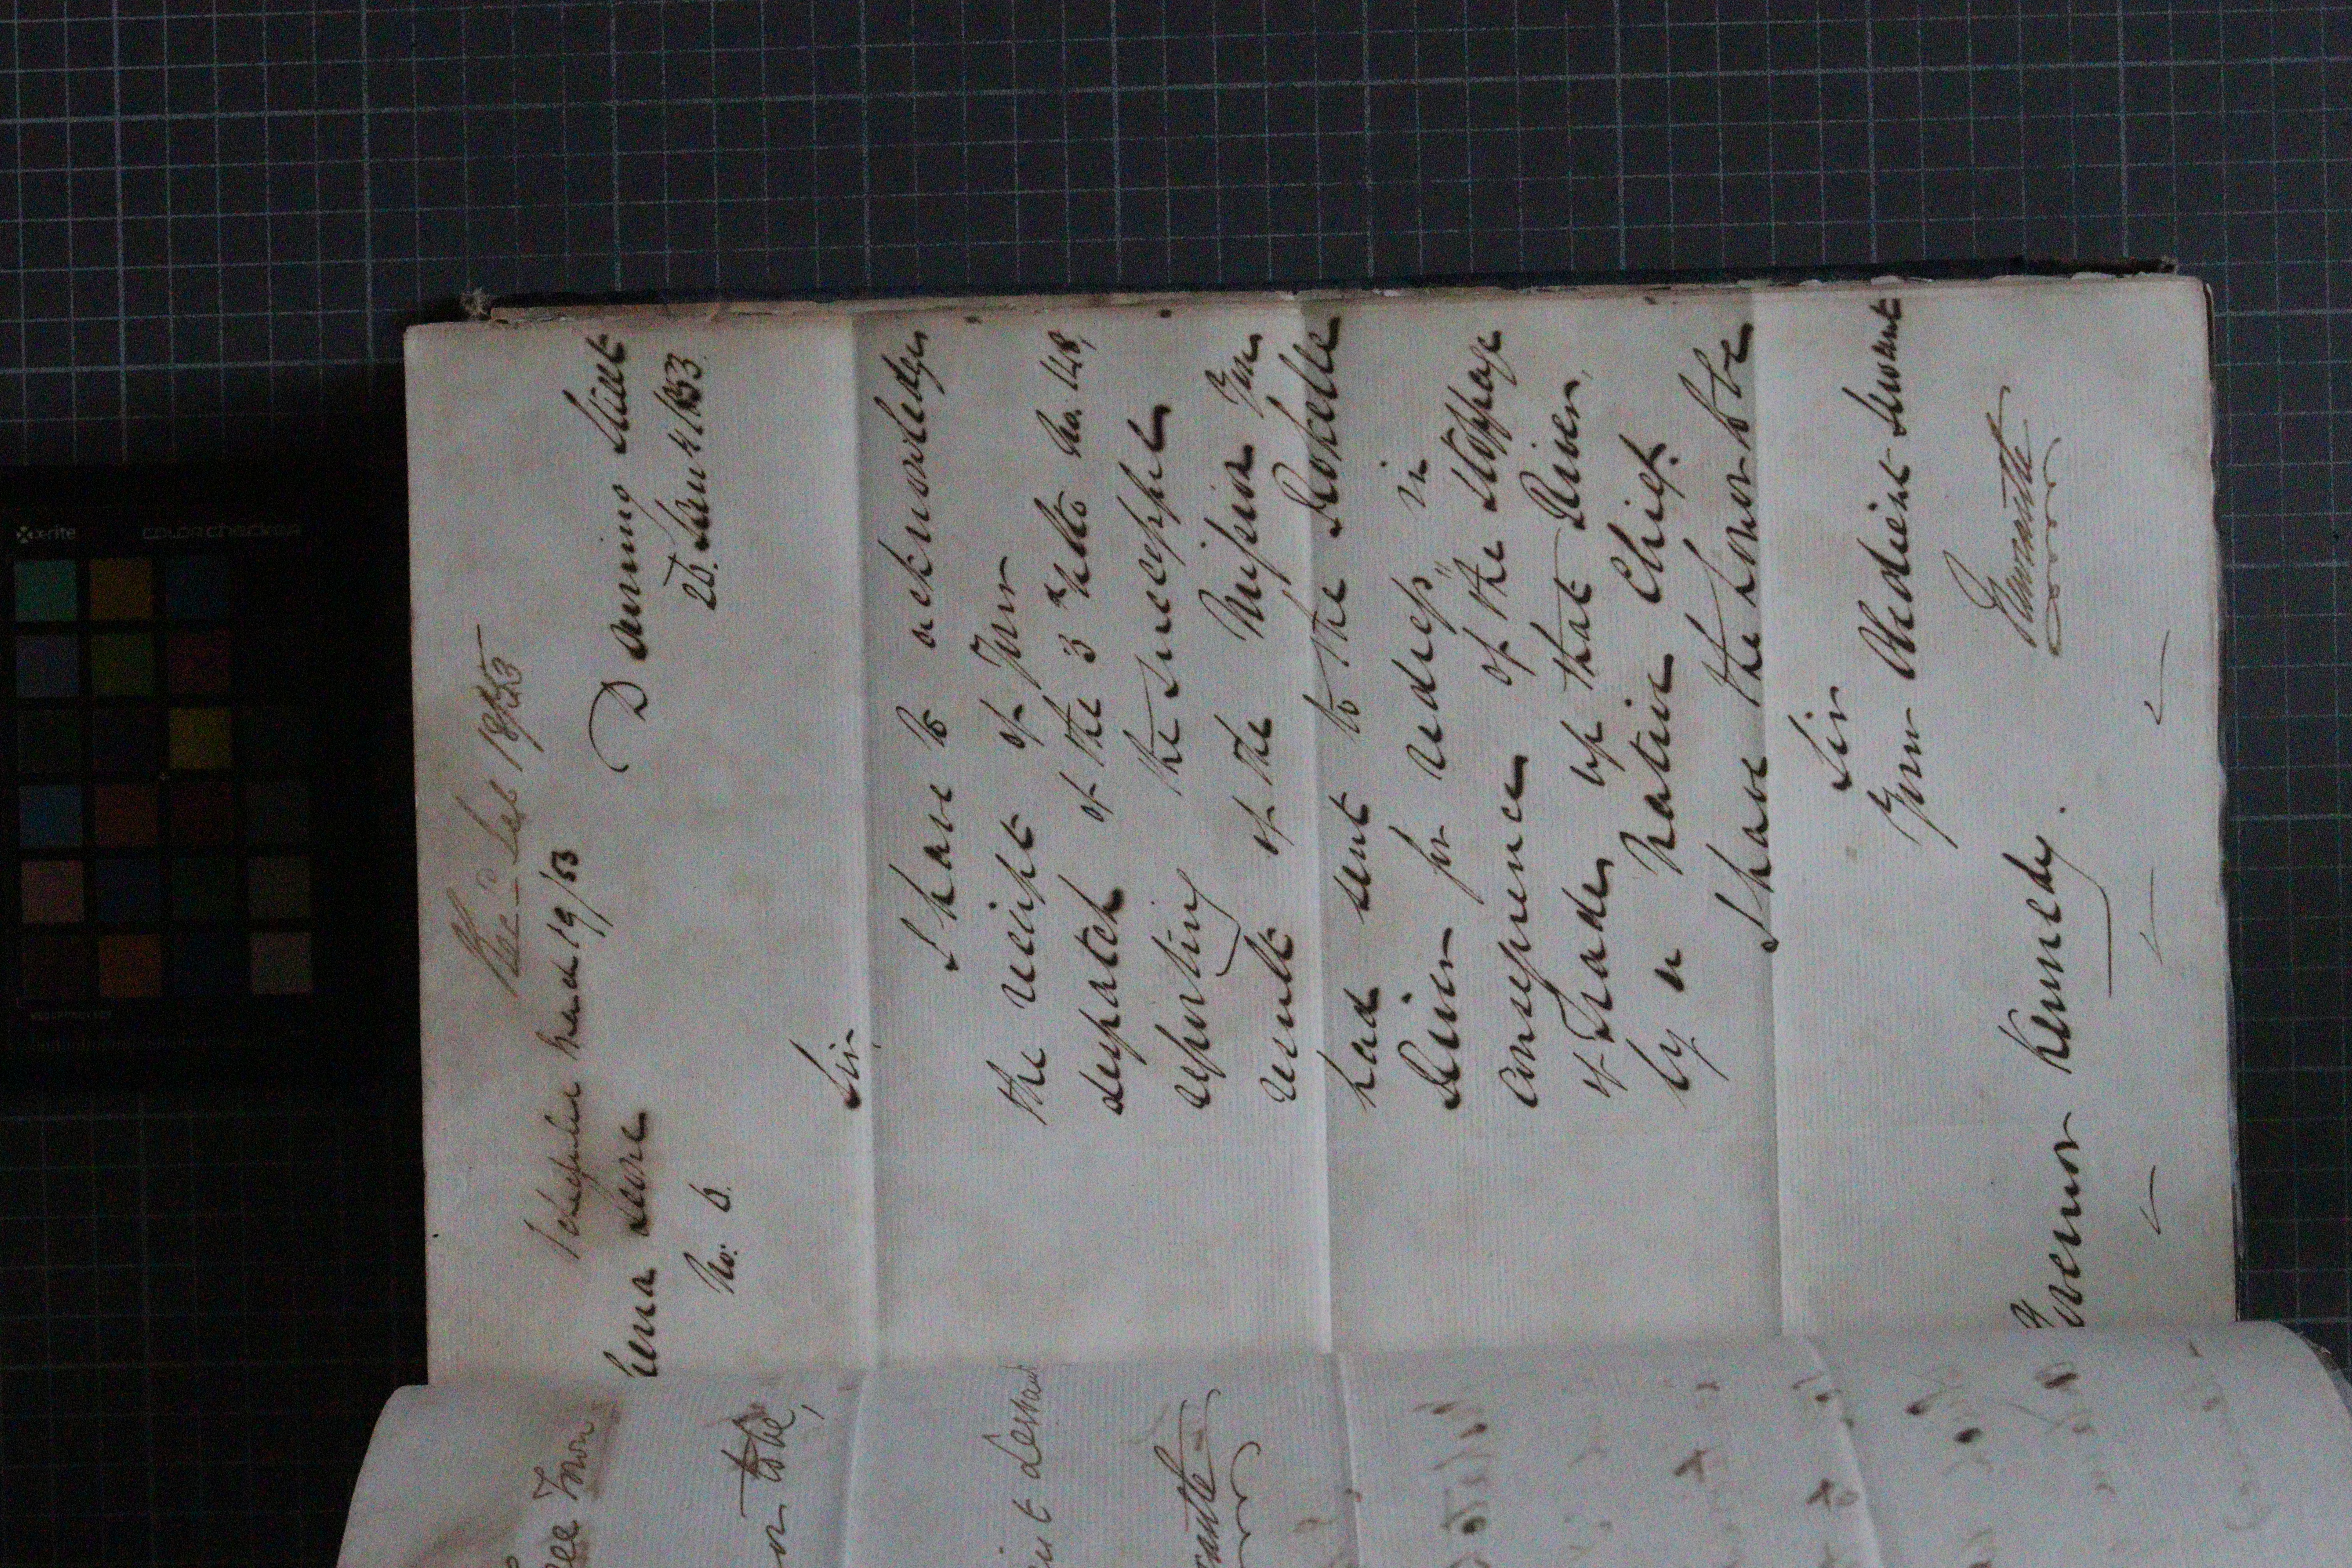 Rec^d Feb 1853
Schedule March 19/53
Sierra Leone
No: 6.
Downing Street
26. Jany 1853.
Sir
I have to acknowledge
the receipt of Your
despatch of the 3^d Ulto No. 148,
reporting the successful
result of the Mission You
had sent to the Rokelle
River for redress, in
consequence of the stoppage
of Trade up that River,
by a Native Chief.
I have the honor to be
Sir
Your Obedient Servant
Newcastle
Governor Kennedy.
x-rite
colorchecker